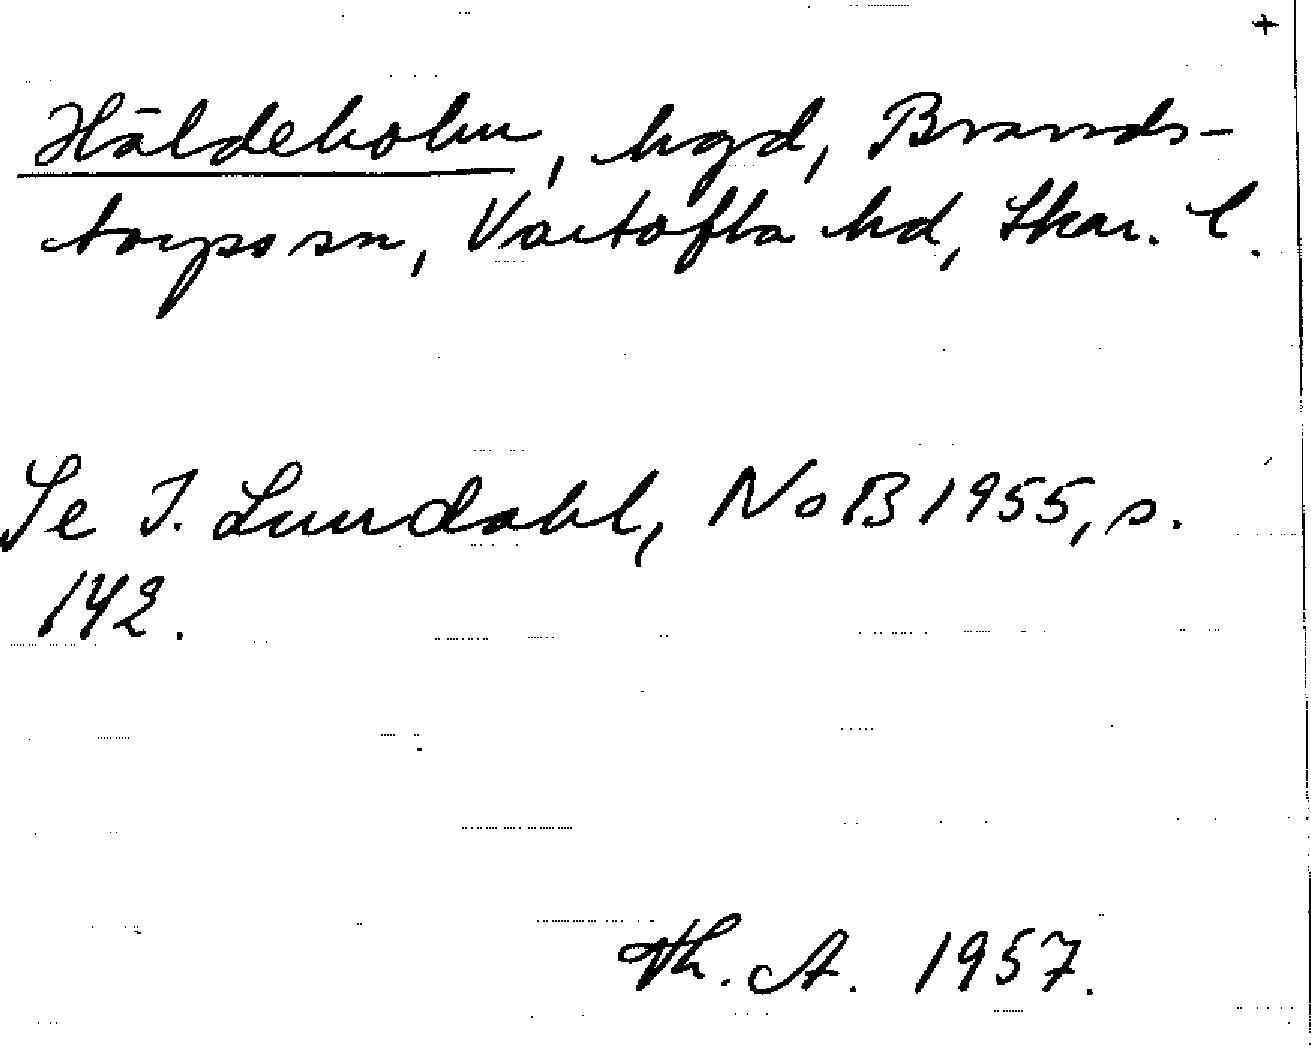 +
Häldeholm, hgd, Brands-
torps sn, Vartofta hd, Skar. l.
Se I. Lundahl, NoB 1955, s.
142.
Th. A. 1957.